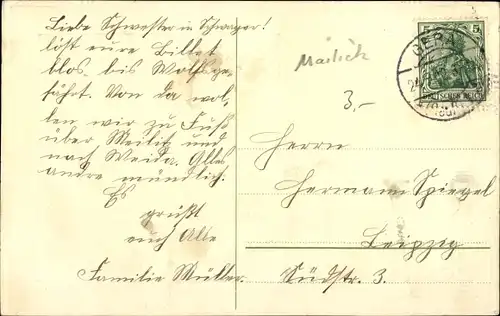 Liebe Schwester u Schwager!
löst eure Billet
blos bis Wolfsge-
fährt. Von da wol-
len wir zu Fuß
über Meilitz und
nach Weida. Alles
andre mündlich.
Es
grüßt
euch Alle
Familie Müller.
Mailich
3,-
GERA
5
DEUTSCHES REICH
Herrn
Hermann Spiegel
Leipzig
Südstr. 3.